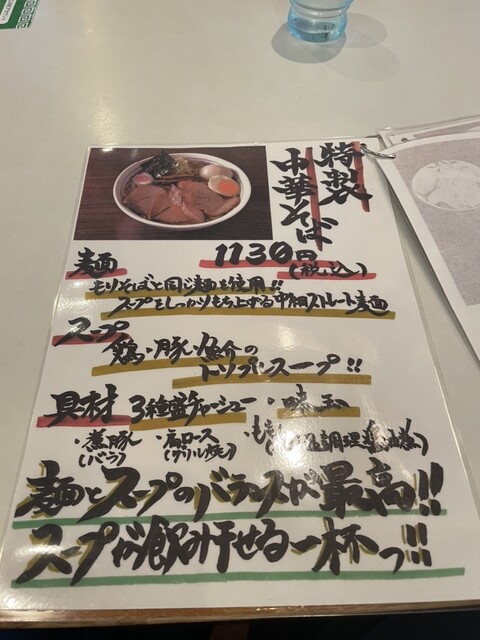 特製
中華そば
1130円
(税込)
麺
もりそばと同じ麺を使用!!
スープをしっかりもち上げる中細ストレート麺
スープ
鶏・豚・魚介の
トリプルスープ!!
具材 3種盛チャーシュー・味玉
・煮豚
(バラ)
・肩ロース
(グリル焼)
・もも
麺とスープのバランスが最高!!
スープが飲み干せる一杯っ!!!